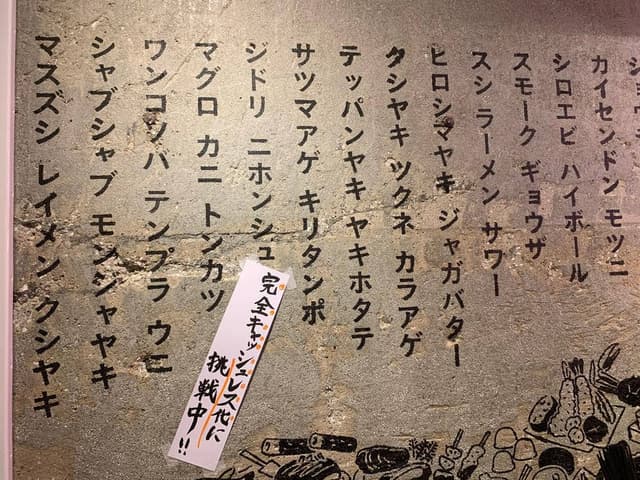 カイセンドン モツニ
シロエビ ハイボール
スモーク ギョウザ
スシ ラーメン サワー
ヒロシマヤキ ジャガバター
タシヤキ ツクネ カラアゲ
テッパンヤキ ヤキホタテ
サツマアゲ キリタンポ
ジドリ ニホンシュ
マグロ カニ トンカツ
ワンコソバ テンプラ ウニ
シャブシャブ モンジャヤキ
マスズシ レイメン クシヤキ
完全キャッシュレス化に
挑戦中!!